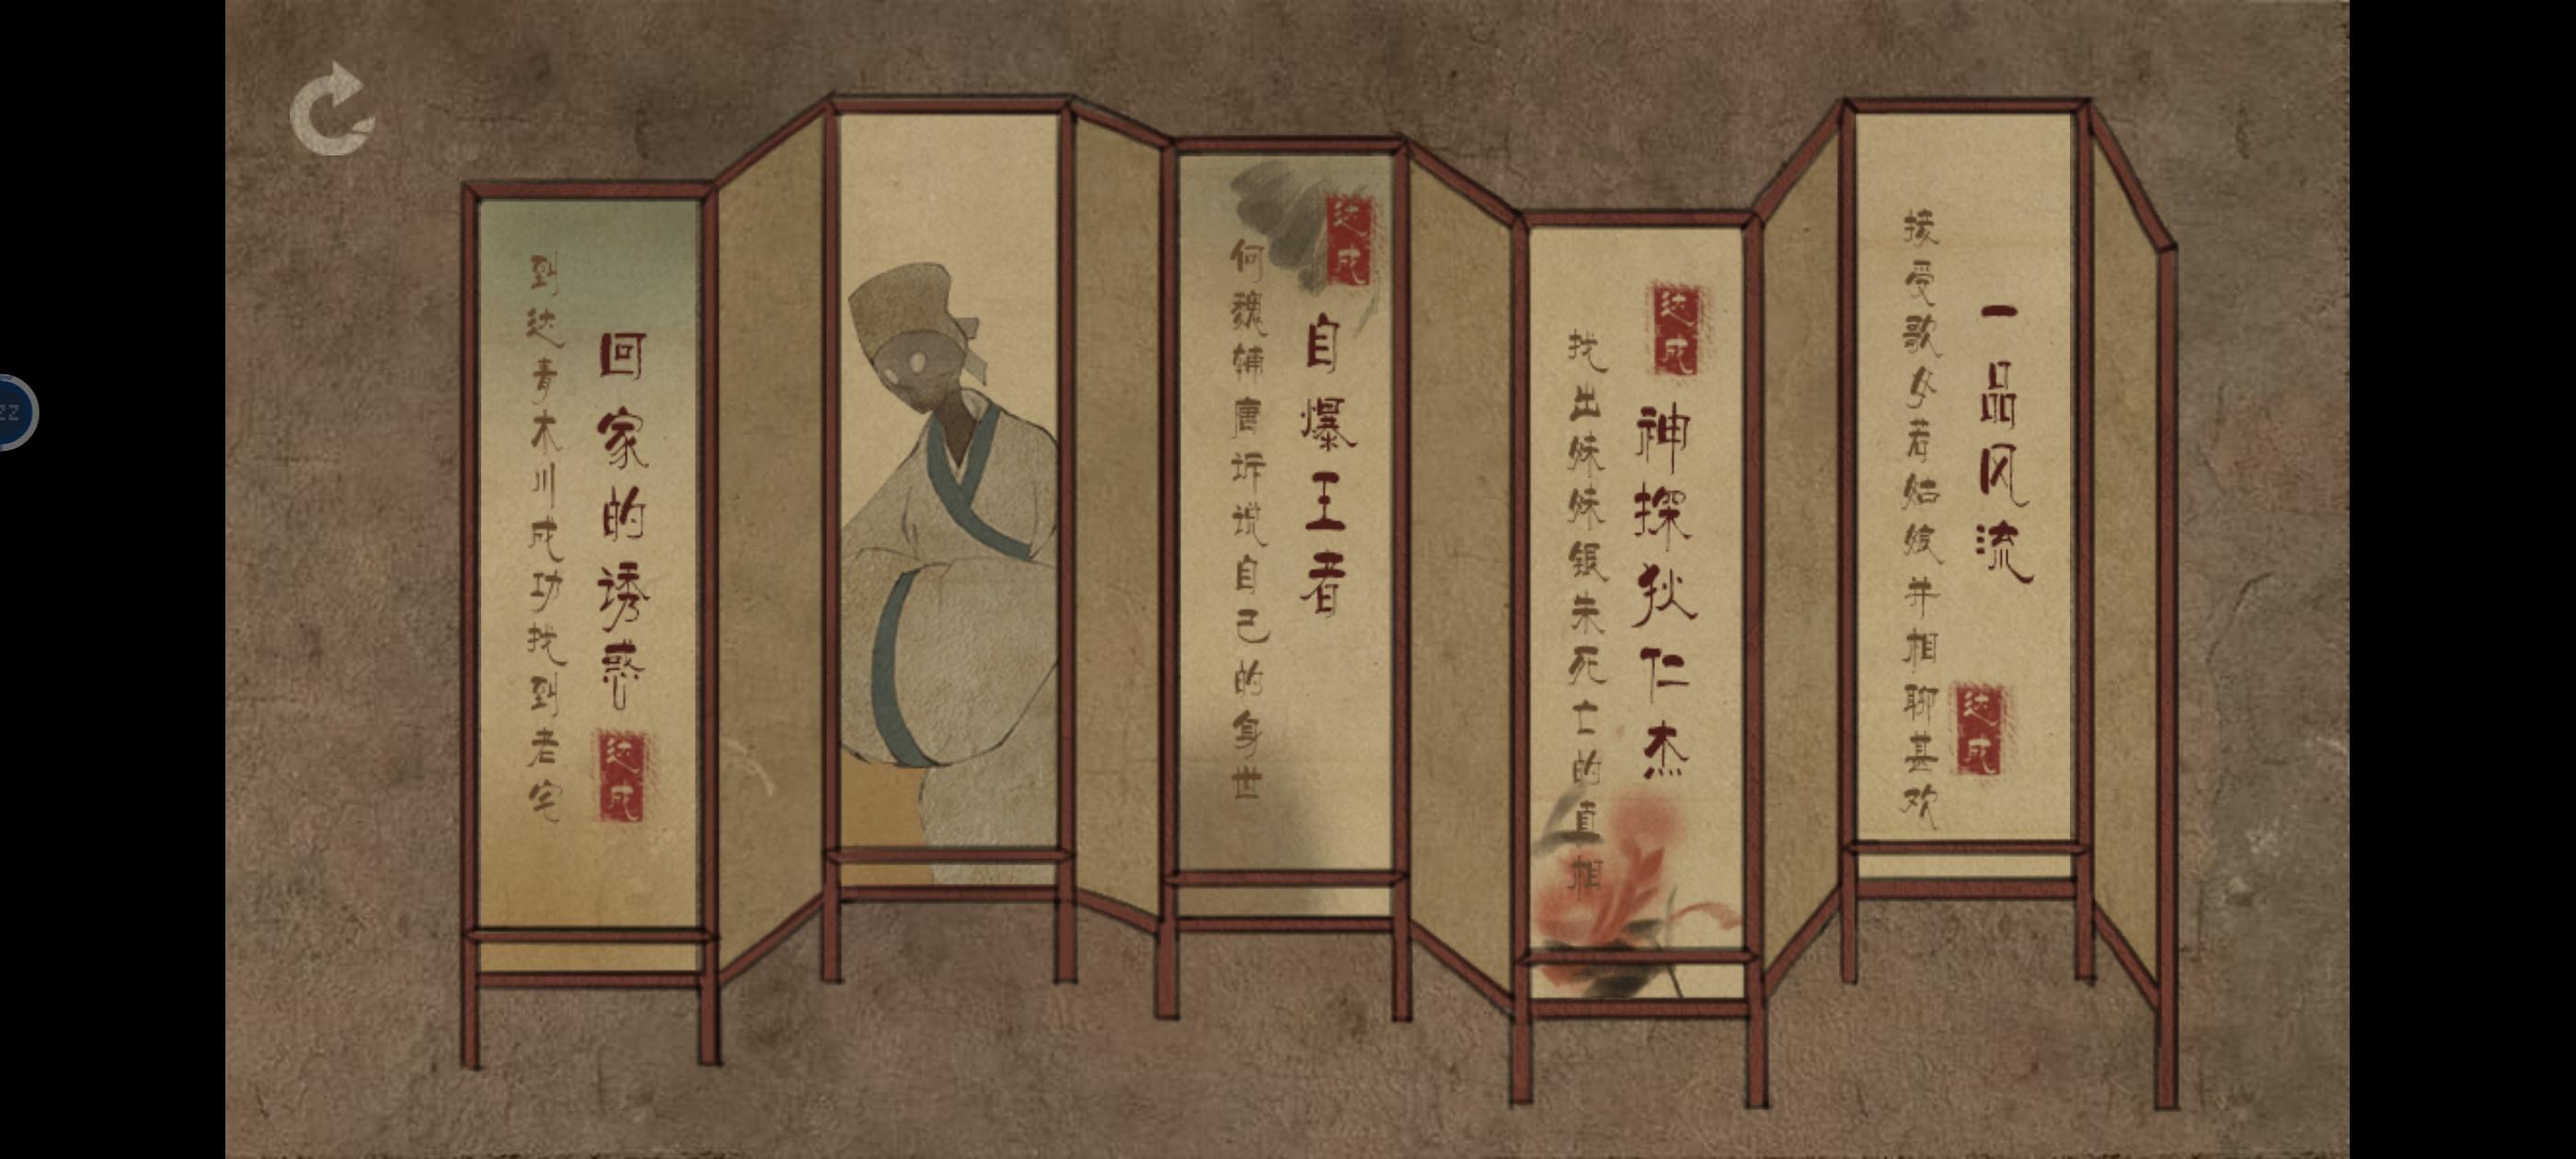 回家的诱惑
到达青木川成功找到老宅
达成
达成
自爆王者
何魏辅唐诉说自己的身世
达成
神探狄仁杰
找出妹妹银朱死亡的真相
一品风流
接受歌女若姑嫂并相聊甚欢
达成
22